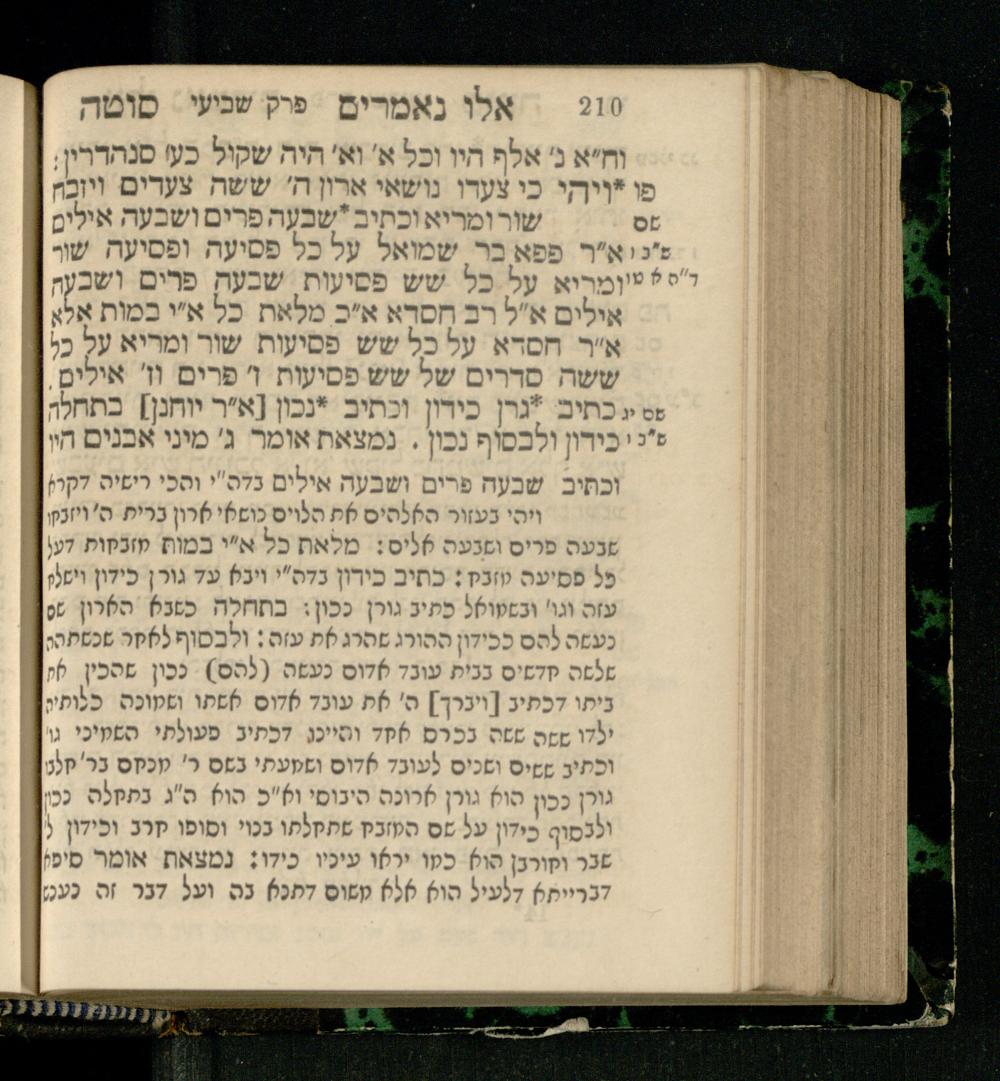 210 אלו נאמרים פרק שביעי סוטה
וח״א נ׳ אלף היו וכל א׳ וא׳ היה שקול כע׳ סנהדרין:
פו *ויהי כי צעדו נושאי ארון ה׳ ששה צעדים ויזבח
שס שור ומריא וכתיב *שבעה פרים ושבעה אילים
ש״ב ו א״ר פפא בר שמואל על כל פסיעה ופסיעה שור
ד״ה א טו ומריא על כל שש פסיעות שבעה פרים ושבעה
אילים א״ל רב חסדא א״כ מלאת כל א״י במות אלא
א״ר חסדא על כל שש פסיעות שור ומריא על כל
ששה סדרים של שש פסיעות ז׳ פרים וז׳ אילים.
שס יג כתיב *גרן כידון וכתיב *נכון [א״ר יוחנן] בתחלה
ש״ב ו כידון ולבסוף נכון. נמצאת אומר ג׳ מיני אבנים היו
וכתיב שבעה פרים ושבעה אילים בדה״י והכי רישיה דקרא
ויהי בעזור האלהים את הלוים נושאי ארון ברית ה׳ ויזבחו
שבעה פרים ושבעה אלים: מלאת כל א״י במות מזבחות דעל
כל פסיעה מזבח: כתיב כידון בדה״י ויבא עד גורן כידון וישלח
עזה וגו׳ ובשמואל כתיב גורן נכון: בתחלה כשבא הארון שם
נעשה להם ככידון ההורג שהרג את עזה: ולבסוף לאחר שנשתהה
שלשה חדשים בבית עובד אדום נעשה (להם) נכון שהכין את
ביתו דכתיב [ויברך] ה׳ את עובד אדום אשתו ושמונה כלותיה
ילדו ששה ששה בכרס אחד והיינו דכתיב פעולתי השמיני גו׳
וכתיב ששים ושנים לעובד אדום ושמעתי בשם ר׳ מנחם בר׳ חלבו
גורן נכון הוא גורן ארונה היבוסי וא״כ הוא ה״ג בתחלה נכון
ולבסוף כידון על שם המזבח שתחלתו בנוי וסופו חרב וכידון ל׳
שבר וחורבן הוא כמו יראו עיניו כידו: נמצאת אומר סיפא
דברייתא דלעיל הוא אלא משום דתנא בה ועל דבר זה נענש